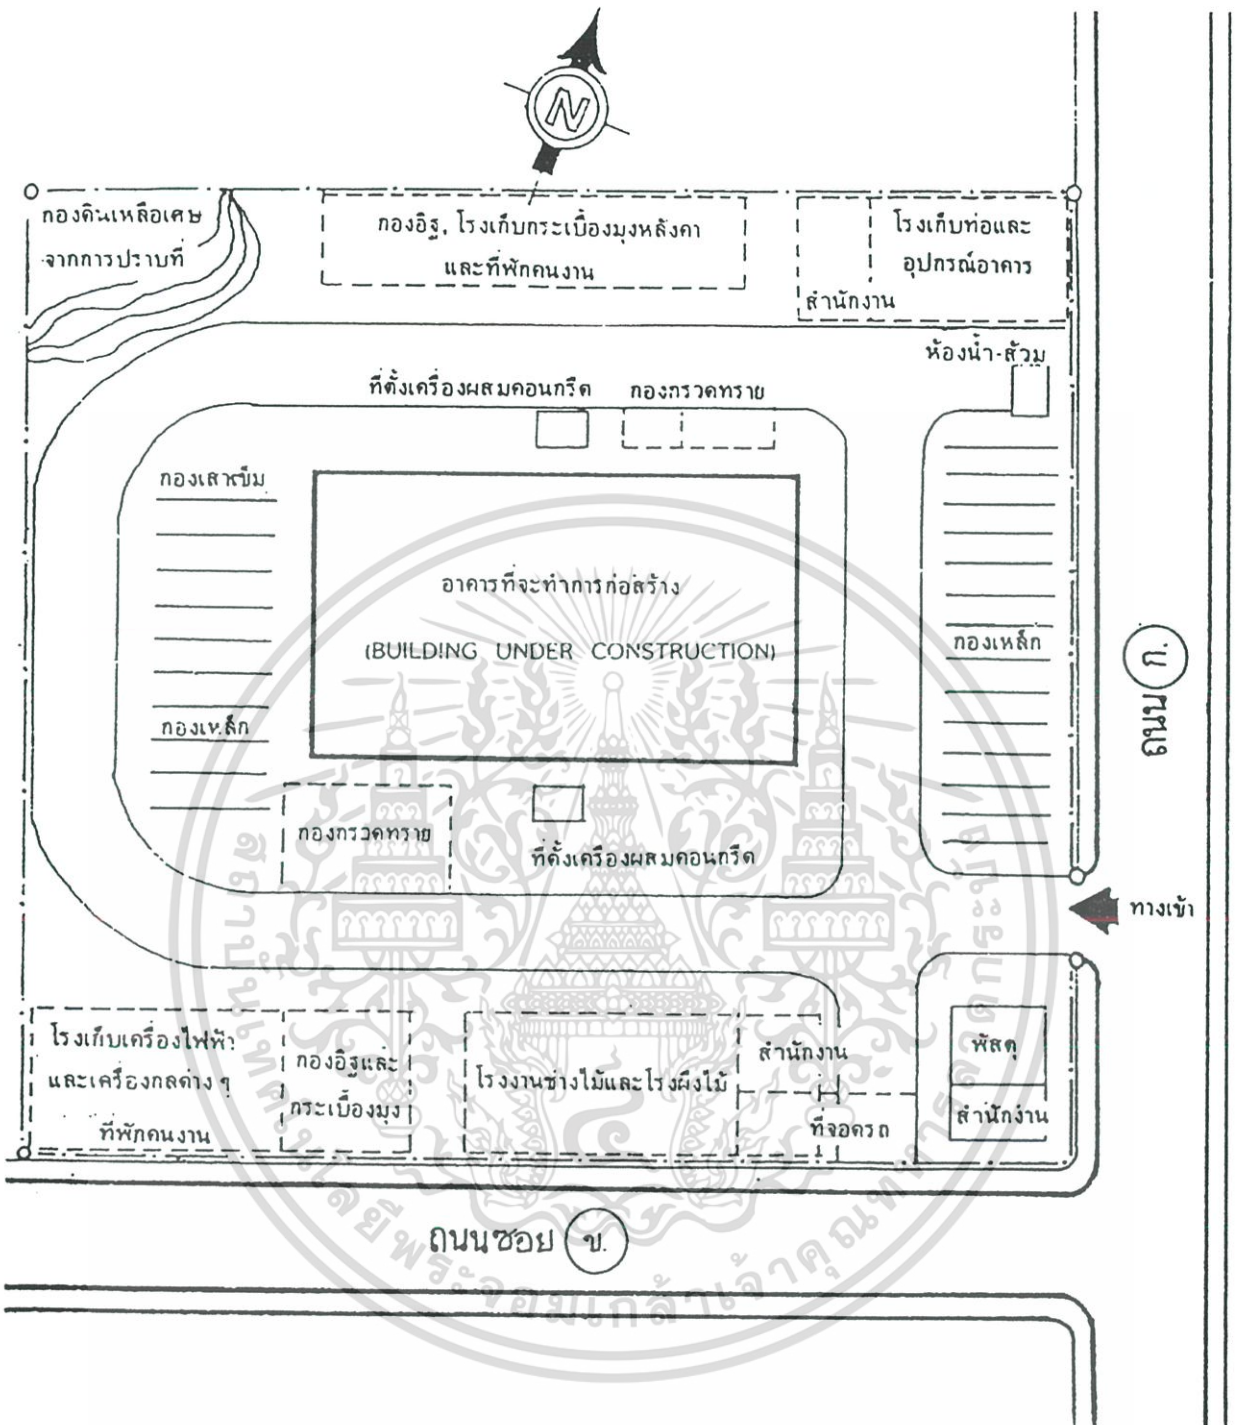 N
กองดินเหลือเศษ
จากการปราบที่
กองอิฐ, โรงเก็บกระเบื้องมุงหลังคา
และที่พักคนงาน
โรงเก็บท่อและ
อุปกรณ์อาคาร
สำนักงาน
ห้องน้ำ-ส้วม
ที่ตั้งเครื่องผสมคอนกรีต
กองกรวดทราย
กองเสาเข็ม
อาคารที่จะทำการก่อสร้าง
(BUILDING UNDER CONSTRUCTION)
กองเหล็ก
ถนน ก.
กองเหล็ก
กองกรวดทราย
ที่ตั้งเครื่องผสมคอนกรีต
ทางเข้า
โรงเก็บเครื่องไฟฟ้า
และเครื่องกลต่าง ๆ
ที่พักคนงาน
กองอิฐและ
กระเบื้องมุง
โรงงานช่างไม้และโรงผึงไม้
สำนักงาน
ที่จอดรถ
พัสดุ
สำนักงาน
ถนนซอย ข.
สถาบันเทคโนโลยีพระจอมเกล้าเจ้าคุณทหารลาดกระบัง